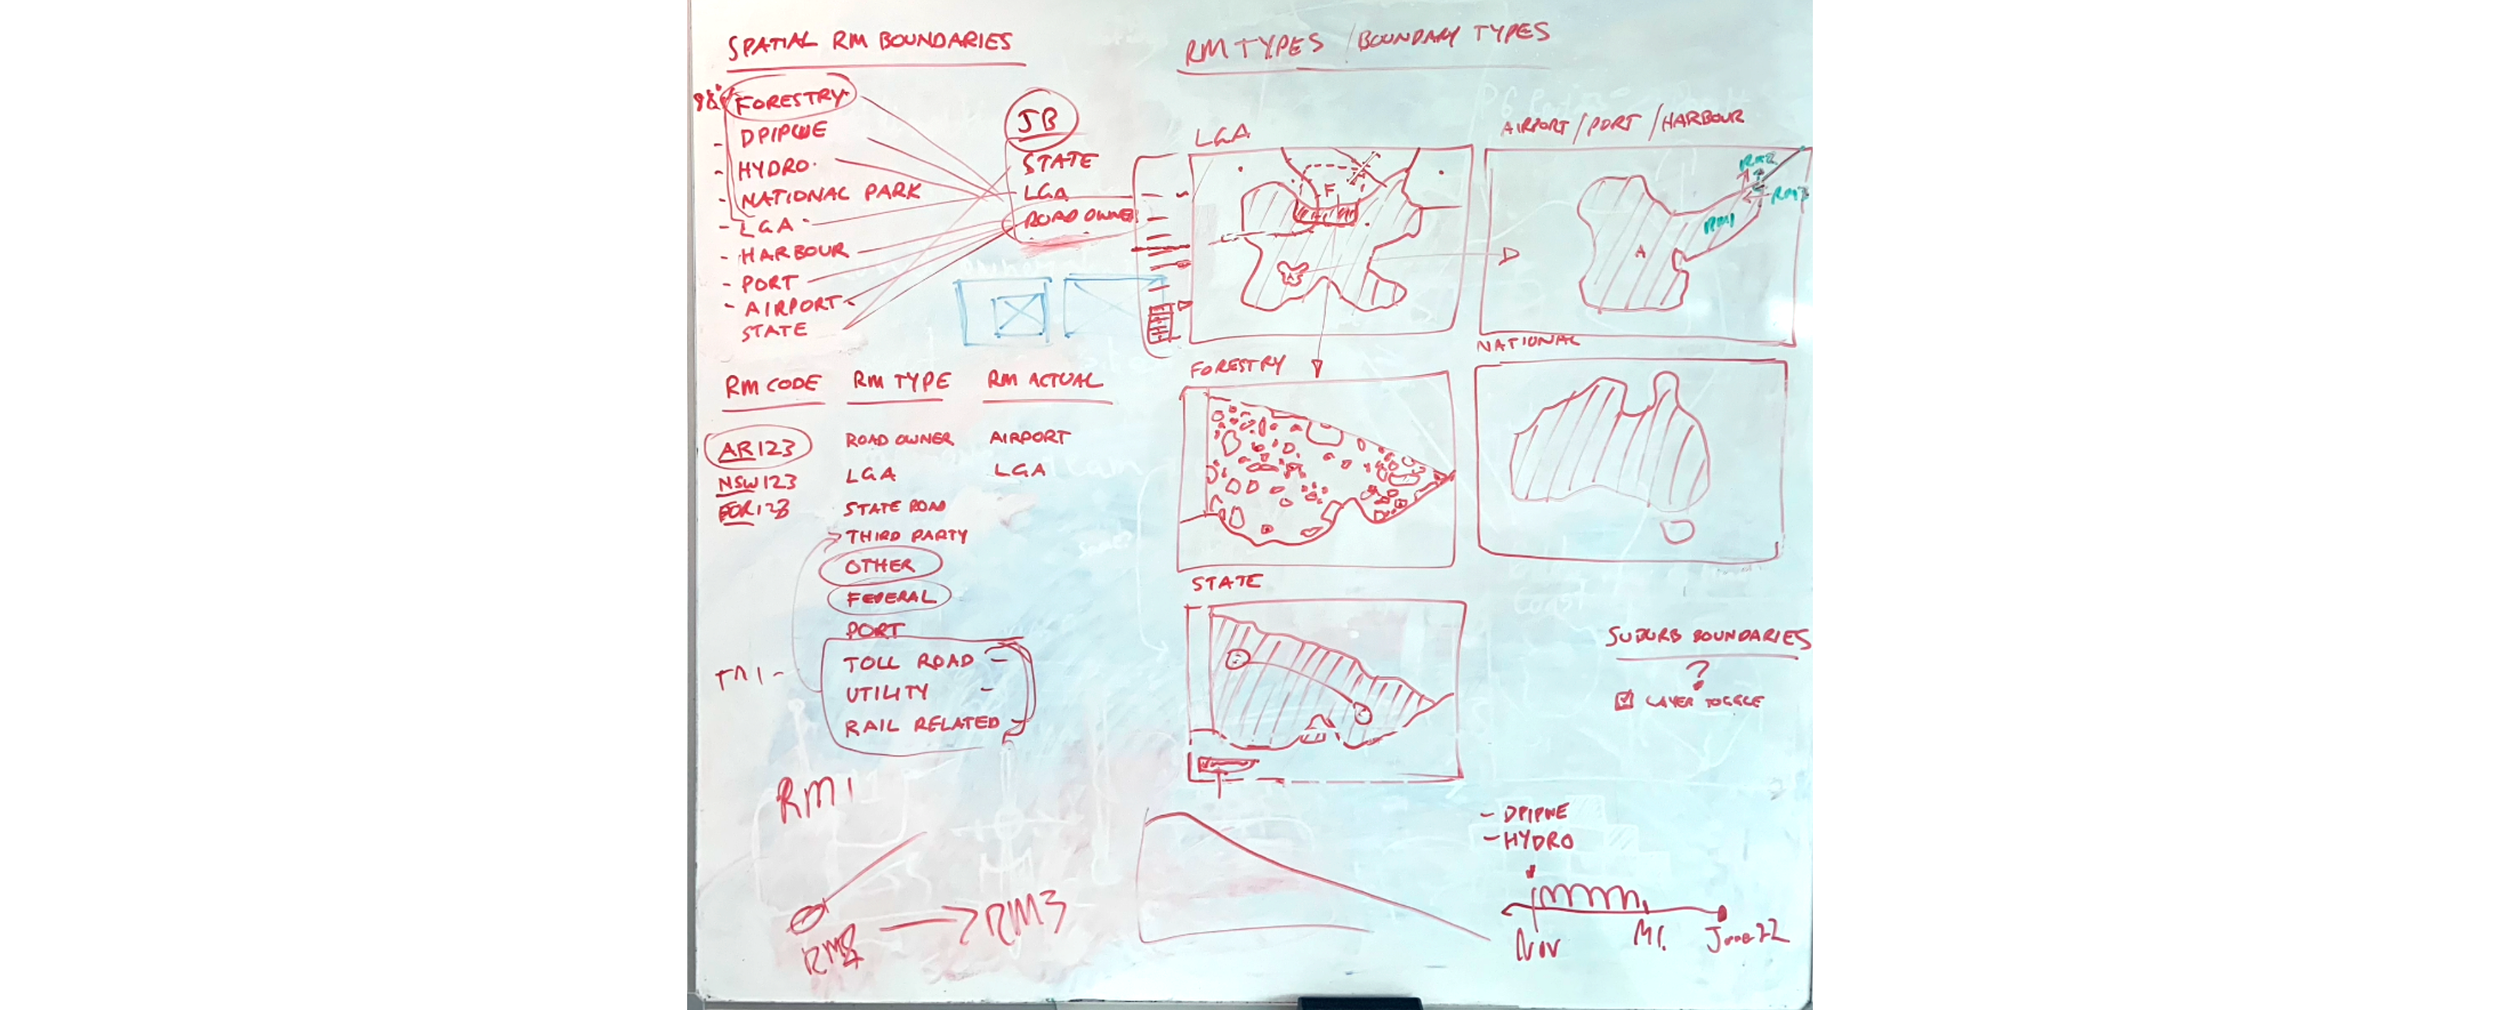 SPATIAL RM BOUNDARIES
FORESTRY
- DPIPWE
- HYDRO
- NATIONAL PARK
- LGA
- HARBOUR
- PORT
- AIRPORT
STATE
JB
STATE
LGA
ROAD OWNER
RM CODE RM TYPE RM ACTUAL
AR123 ROAD OWNER AIRPORT
NSW123 LGA LGA
FOR123 STATE ROAD
THIRD PARTY
OTHER
FEDERAL
PORT
TOLL ROAD -
UTILITY -
RAIL RELATED -
RM1
RM3
RM TYPES / BOUNDARY TYPES
LGA
F
A
AIRPORT / PORT / HARBOUR
RM2
RM3
RM1
A
FORESTRY
NATIONAL
STATE
SUBURB BOUNDARIES
?
LAYER TOGGLE
- DPIPWE
- HYDRO
Nov
June 22